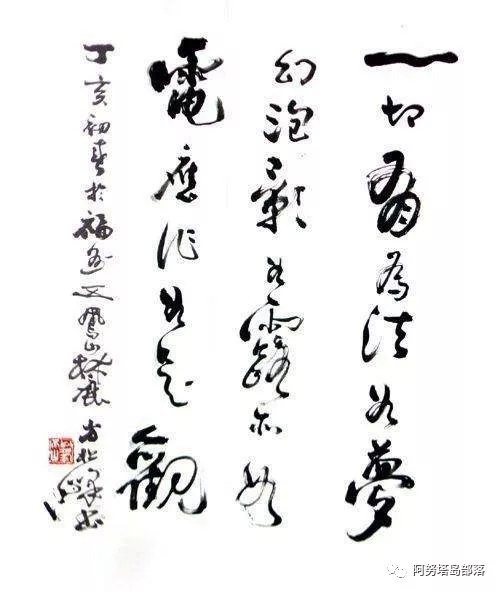 一切有為法如夢
幻泡影如露亦如
電應作如是觀
丁亥初春於福州五鳳山麓
阿努塔岛部落